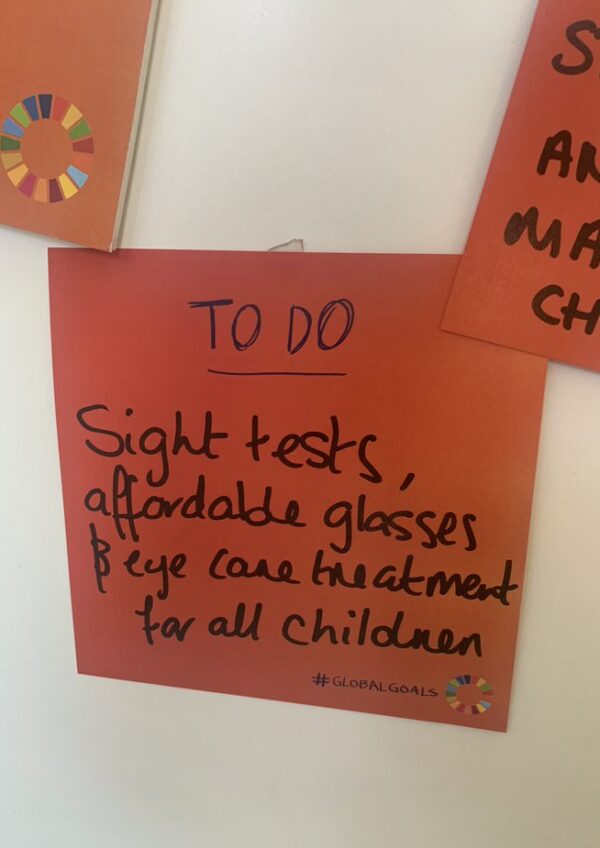 TO DO
Sight tests,
affordable glasses
& eye care treatment
for all children
#GLOBALGOALS
AN
MA
CH